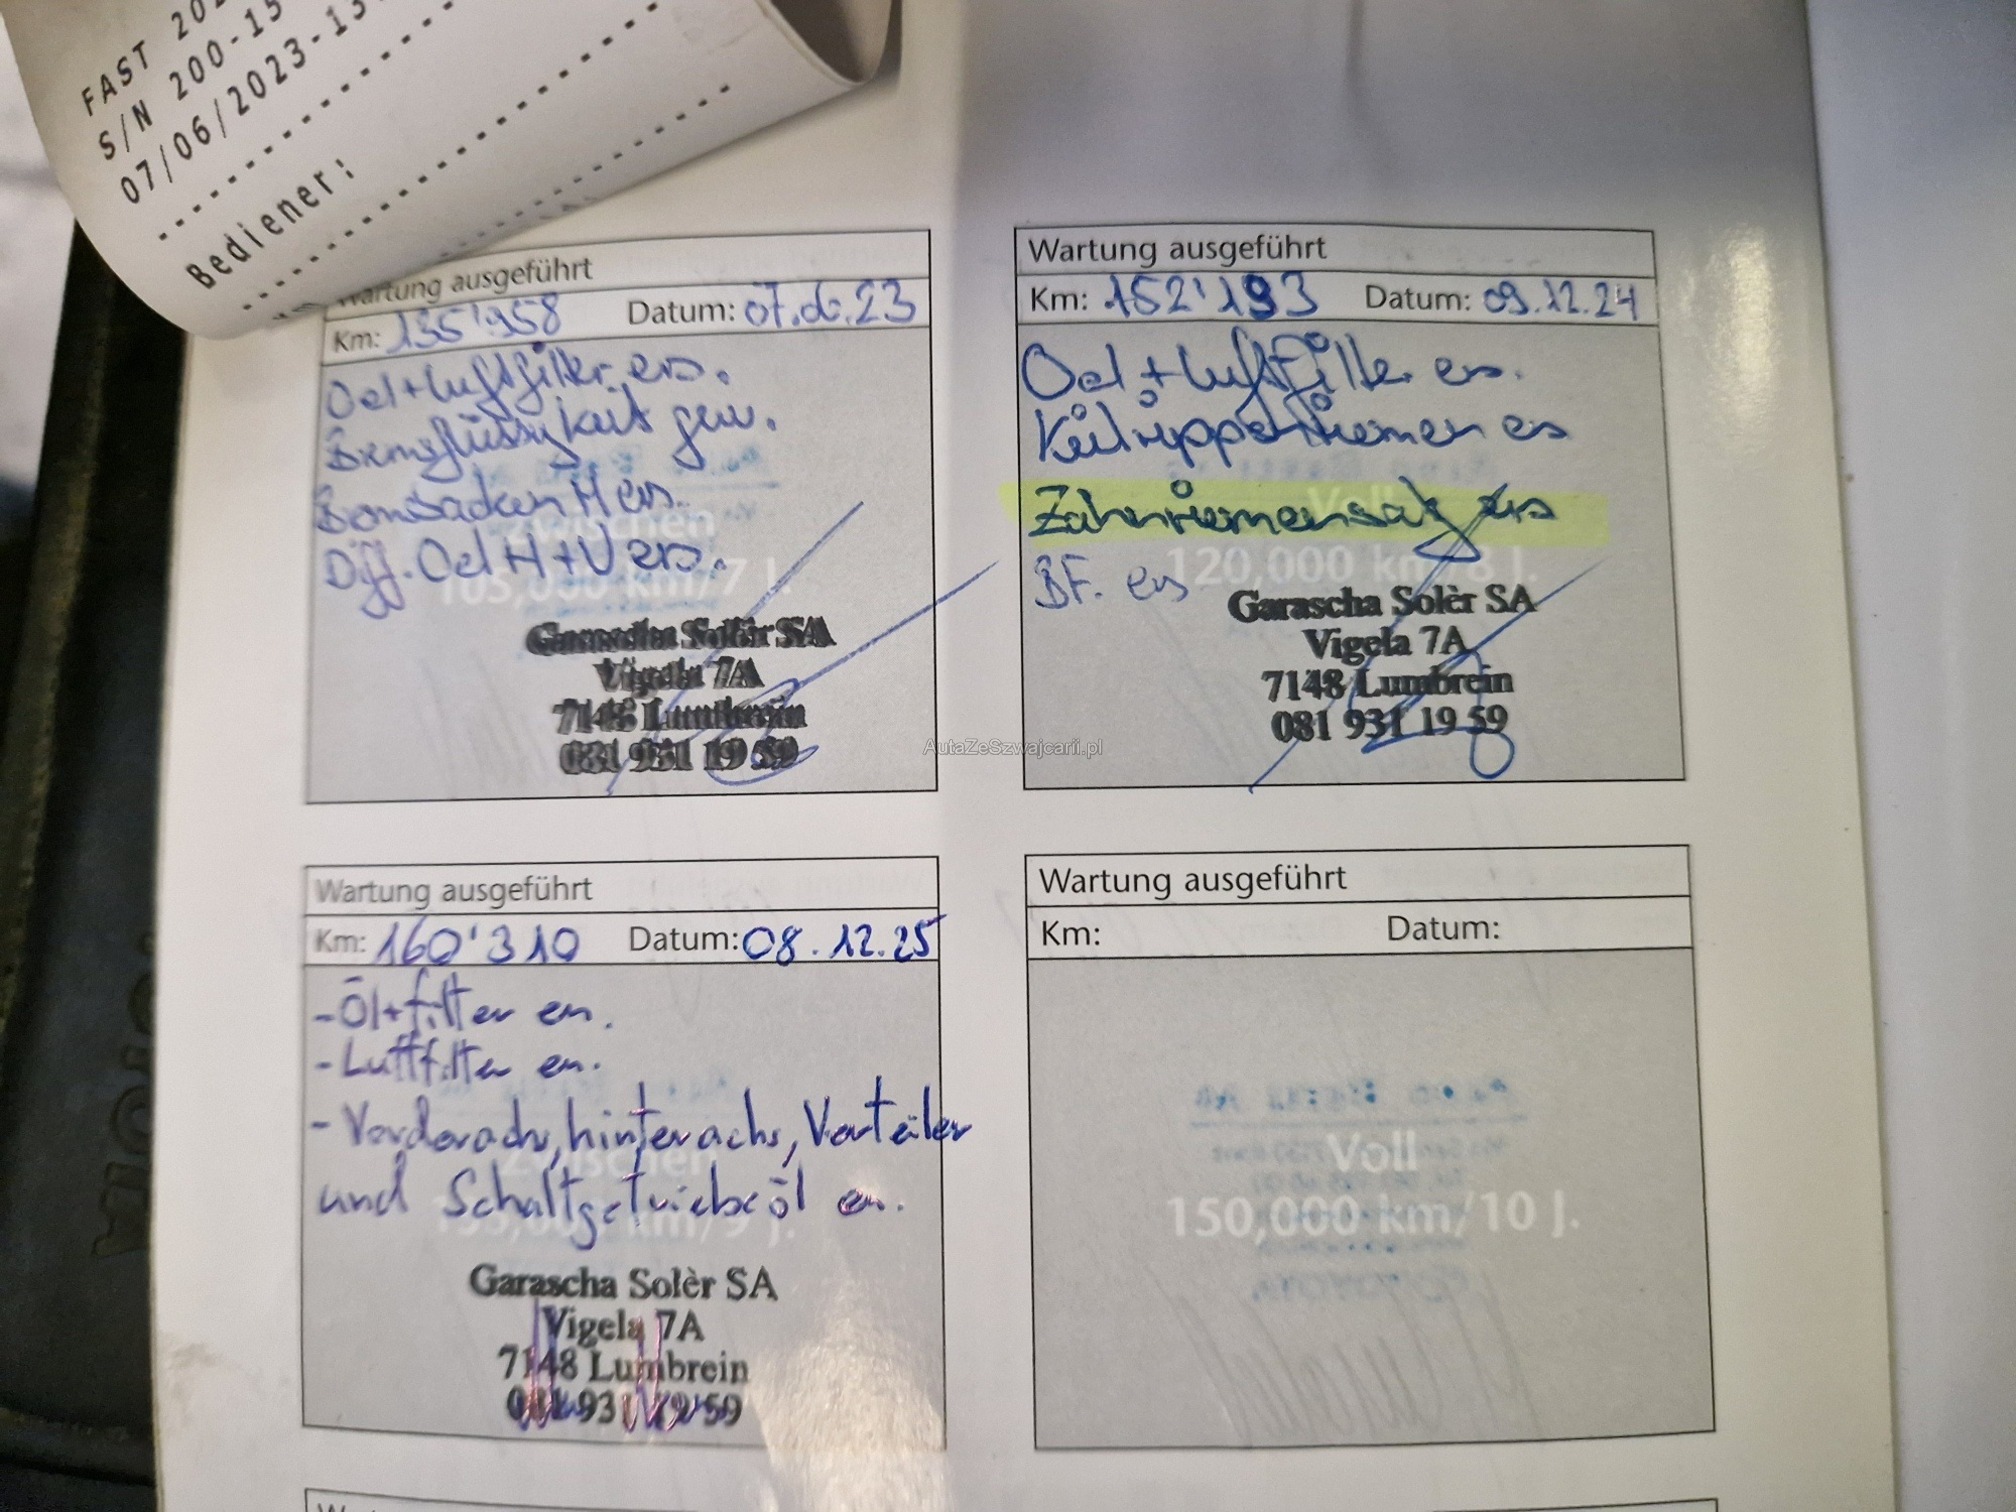 FAST 202
S/N 200-15
07/06/2023-13
Bediener:
Wartung ausgeführt
Km: 135'958 Datum: 07.06.23
Oel+Luftfilter ers.
Bremsflüssigkeit gew.
Bremsbacken H ers.
Diff. Oel H+V ers.
Zwischen
105,000 km/7 J.
Garascha Solèr SA
Vigela 7A
7148 Lumbrein
081 931 19 59
Wartung ausgeführt
Km: 152'193 Datum: 09.12.24
Oel + Luftfilter ers.
Keilrippenriemen ers
Zahnriemensatz ers
BF. ers
Voll
120,000 km/8 J.
Garascha Solèr SA
Vigela 7A
7148 Lumbrein
081 931 19 59
AutaZeSzwajcarii.pl
Wartung ausgeführt
Km: 160'310 Datum: 08.12.25
- Öl+filter er.
- Luftfilter er.
- Vorderachs, hinterachs, Verteiler
und Schaltgetriebeöl er.
Zwischen
135,000 km/9 J.
Garascha Solèr SA
Vigela 7A
7148 Lumbrein
081 931 19 59
Wartung ausgeführt
Km: Datum:
Voll
150,000 km/10 J.